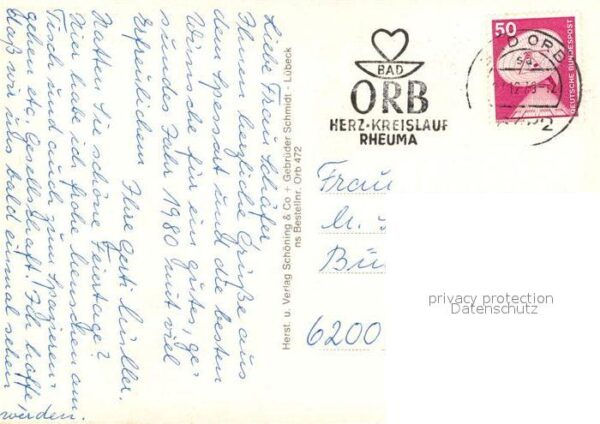 Liebe Frau Schäfer
Ihnen herzliche Grüße aus
dem Spessart und die besten
Wünsche für ein gutes, ge-
sundes Jahr 1980 mit viel
Erfreulichem
Ihre Gerti Müller.
Hatten Sie schöne Feiertage?
Hier habe ich frohe Menschen am
Tisch und auch zum Spazieren-
gehen etc. Gesellschaft. Ich hoffe
daß wir uns bald einmal sehen
werden.
Herst. u. Verlag Schöning & Co + Gebrüder Schmidt - Lübeck
ns Bestellnr. Orb 472
BAD
ORB
HERZ-KREISLAUF
RHEUMA
50
DEUTSCHE BUNDESPOST
D ORB
Frau
M.
Bü
6200
privacy protection
Datenschutz